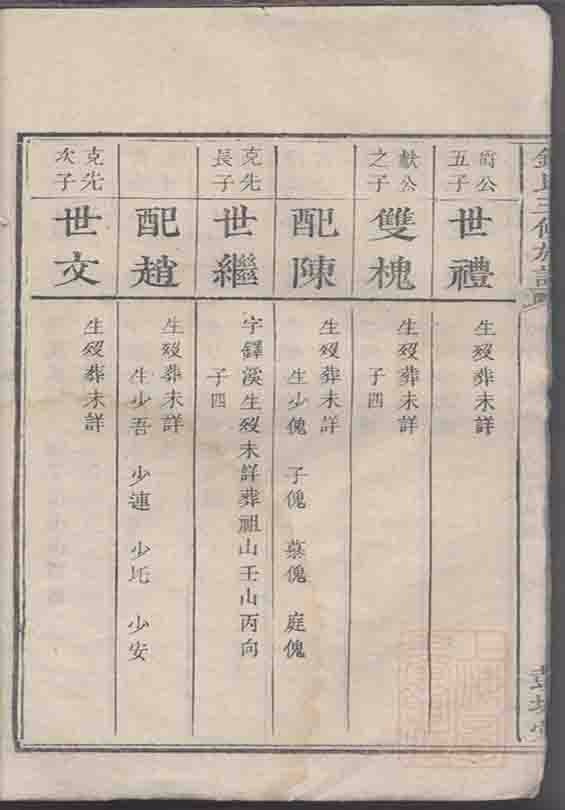 公
五子
世禮
生歿葬未詳
獻公
之子
雙槐
生歿葬未詳
子四
配陳
生歿葬未詳
生少傀 子傀 慕傀 庭傀
克先
長子
世繼
字鐸溪生歿未詳葬祖山壬山丙向
子四
配趙
生歿葬未詳
生少吾 少連 少圫 少安
克先
次子
世文
生歿葬未詳